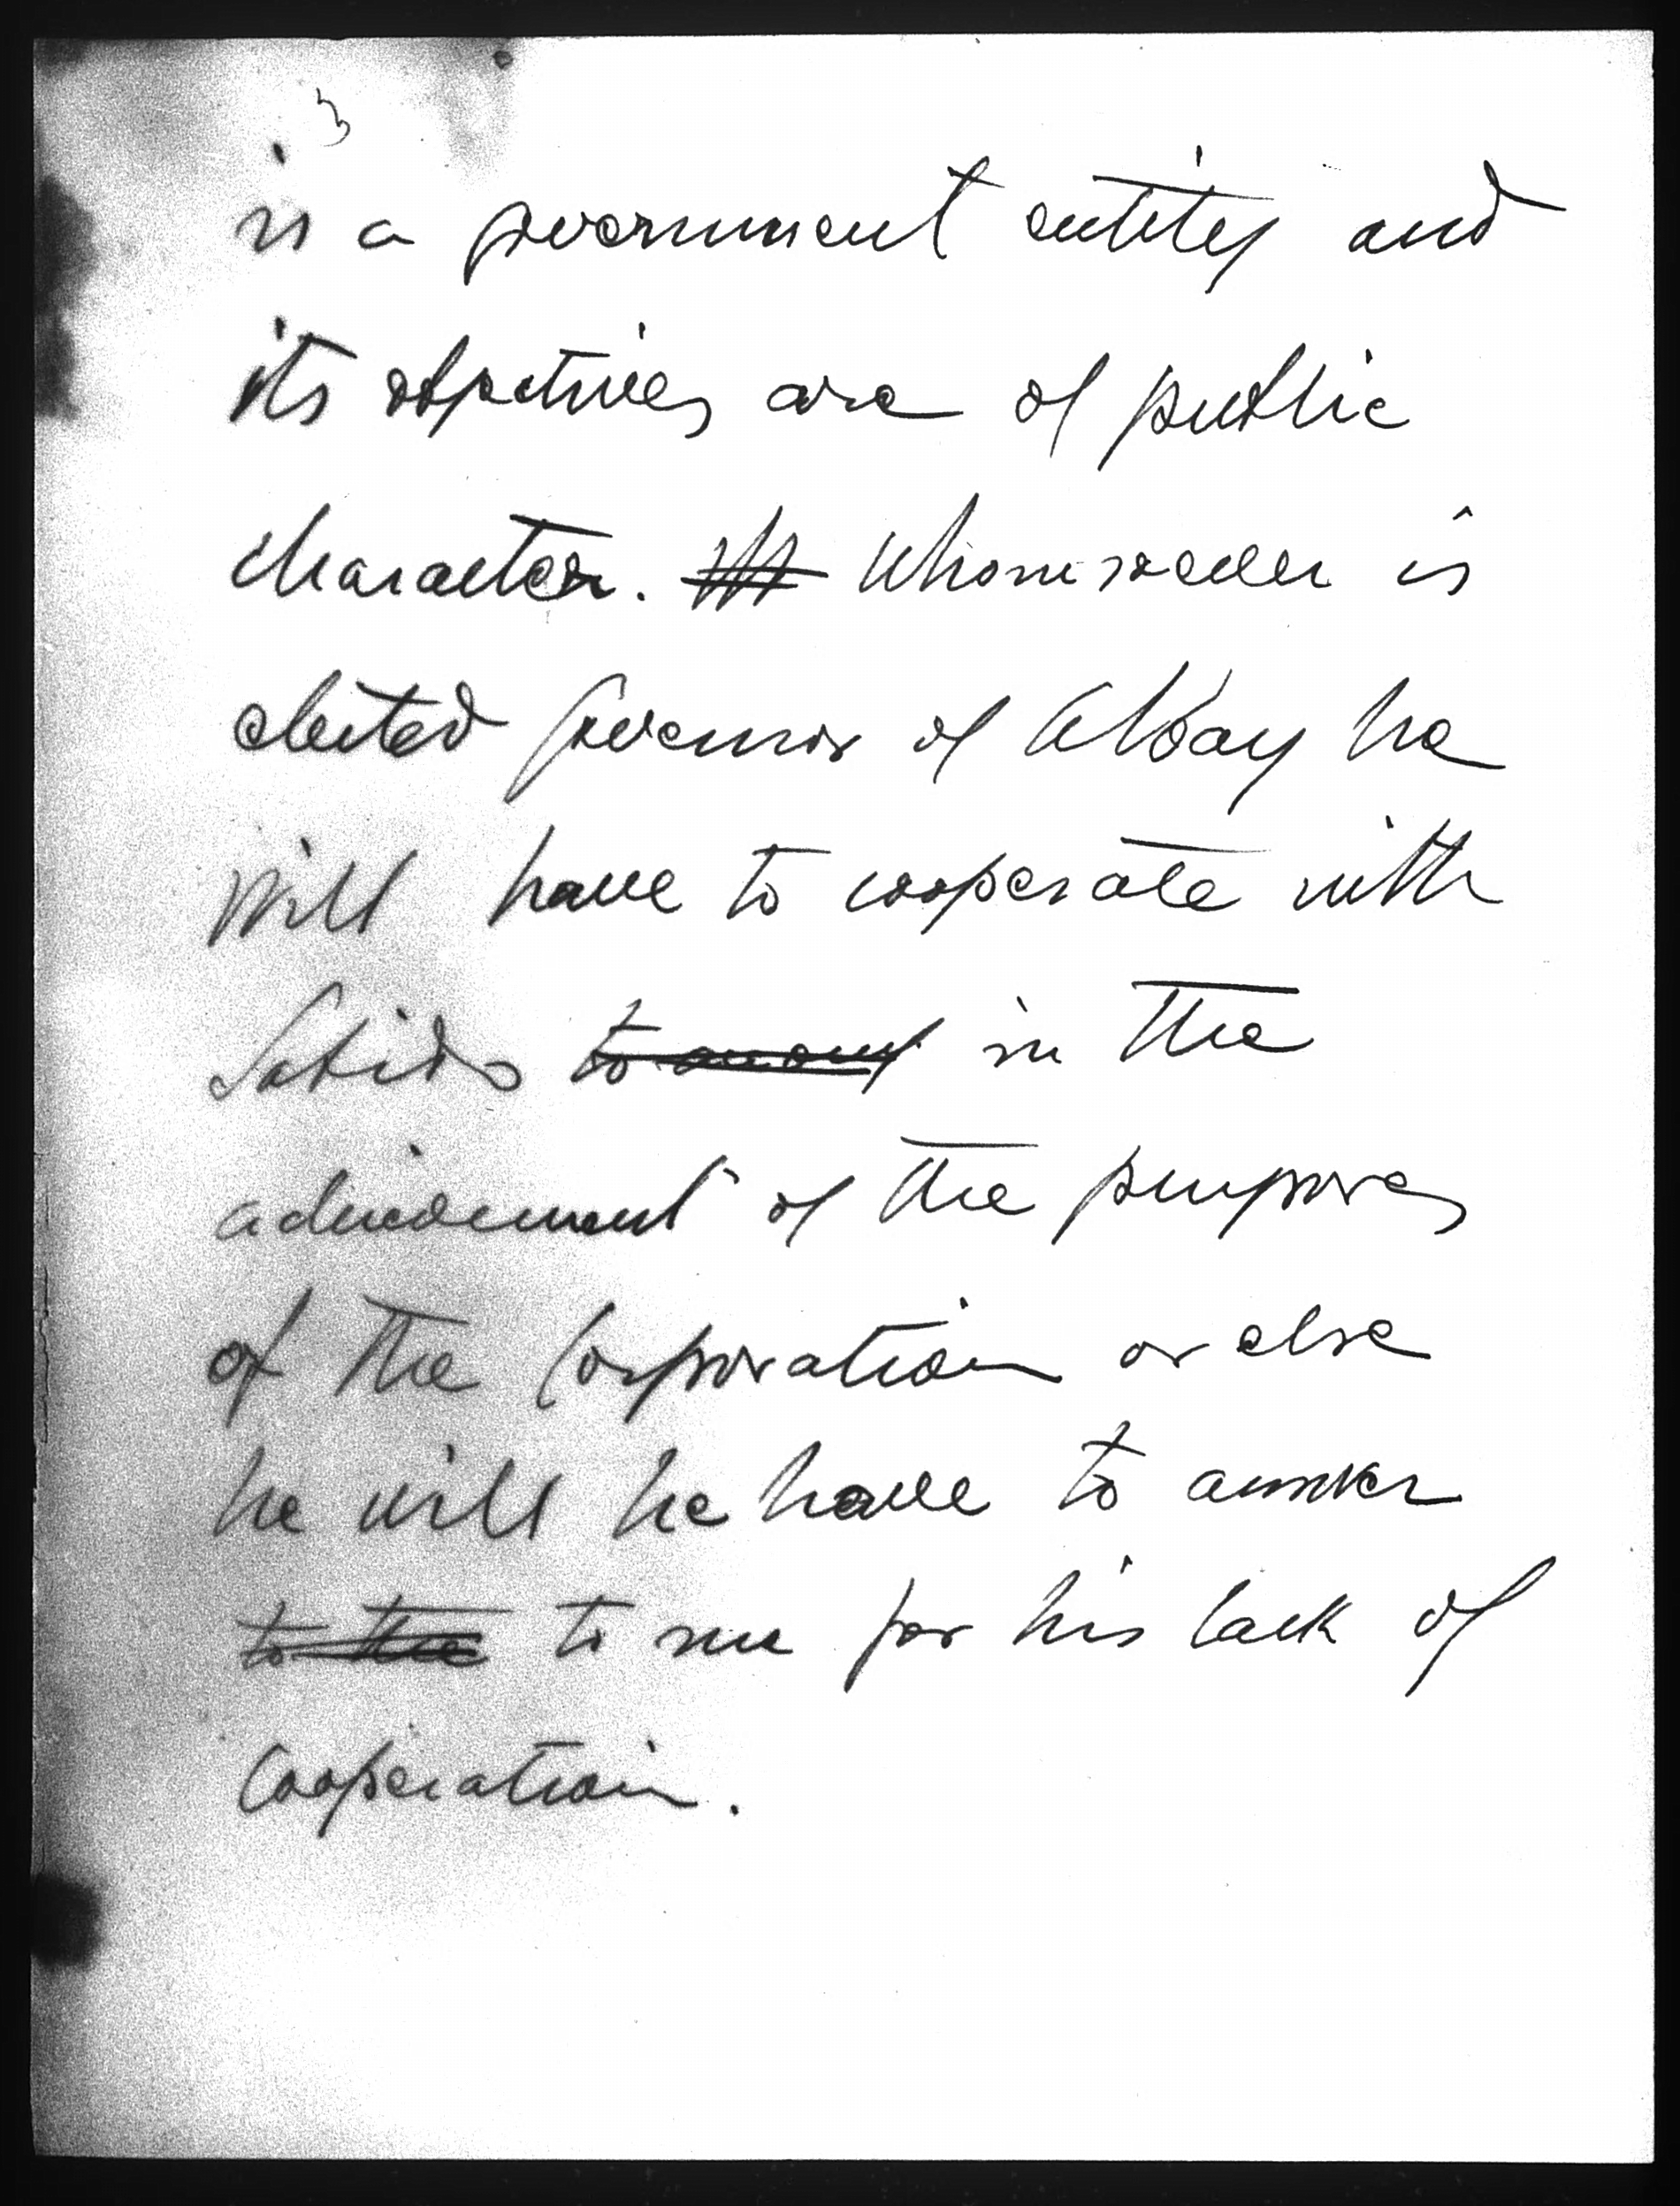 3
is a government entity and
its objectives are of public
character. Whomsoever is
elected Governor of Albay he
will have to cooperate with
Sabido in the
achievement of the purposes
of the Corporation or else
he will he have to answer
to the to me for his lack of
Cooperation.